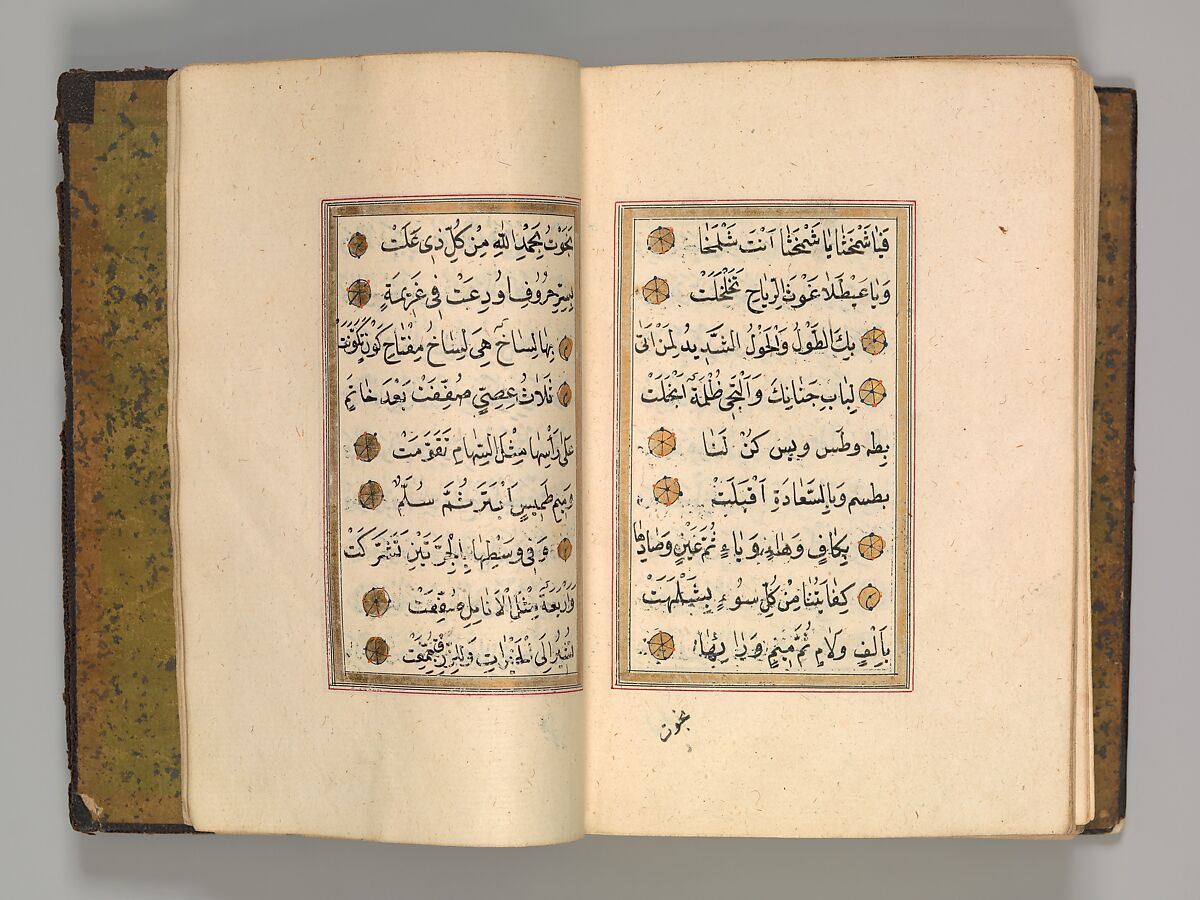 فَيَاشَمْخَثَا يَا شَمْخَثَا اَنْتَ شَلْمَخَا
وَيَا عَيْطَلَا غَوْثِ الرِّيَاحِ تَخَلْخَلَتْ
بِكَ الطَّوْلُ وَالْحَوْلُ الشَّدِيدُ لِمَنْ اَتٰى
لِبَابِ جَنَابِكَ وَالْتَجٰى ظُلْمَةً اَنْجَلَتْ
بِطٰه وَطٰس وَيٰس كُنْ لَنَا
بِطسم وَبِالسَّعَادَةِ اَقْبَلَتْ
بِكَافٍ وَهَاءٍ وَيَاءٍ ثُمَّ عَيْنٍ وَصَادِهَا
كِفَايَتُنَا مِنْ كُلِّ سُوءٍ بِشَلْمَهَتْ
بِاَلِفٍ وَلَامٍ ثُمَّ مِيمٍ وَرَائِهَا
نجوت
نَجَوْتُ بِحَمْدِ اللّٰهِ مِنْ كُلِّ ذِى عَلَتْ
بِسِرِّ حُرُوفٍ اُودِعَتْ فِى عَزِيمَةٍ
بِهَا لِسَاخٌ هِىَ لِسَاخٌ مِفْتَاحِ كَوْنٍ تَكَوَّنَتْ
ثَلَاثُ عِصِىٍّ صُفِّفَتْ بَعْدَ خَاتَمٍ
عَلٰى رَأْسِهَا مِثْلَ السِّهَامِ تَقَوَّمَتْ
وَمِيمٌ طَمِيسٌ اَبْتَرَ ثُمَّ سُلَّمٌ
وَفِى وَسْطِهَا بِالْجَرَّتَيْنِ تَشَرَّكَتْ
وَاَرْبَعَةٌ مِثْلُ الْاَنَامِلِ صُفِّفَتْ
تُشِيرُ اِلَى الْخَيْرَاتِ وَلِلرِّزْقِ جُمِّعَتْ